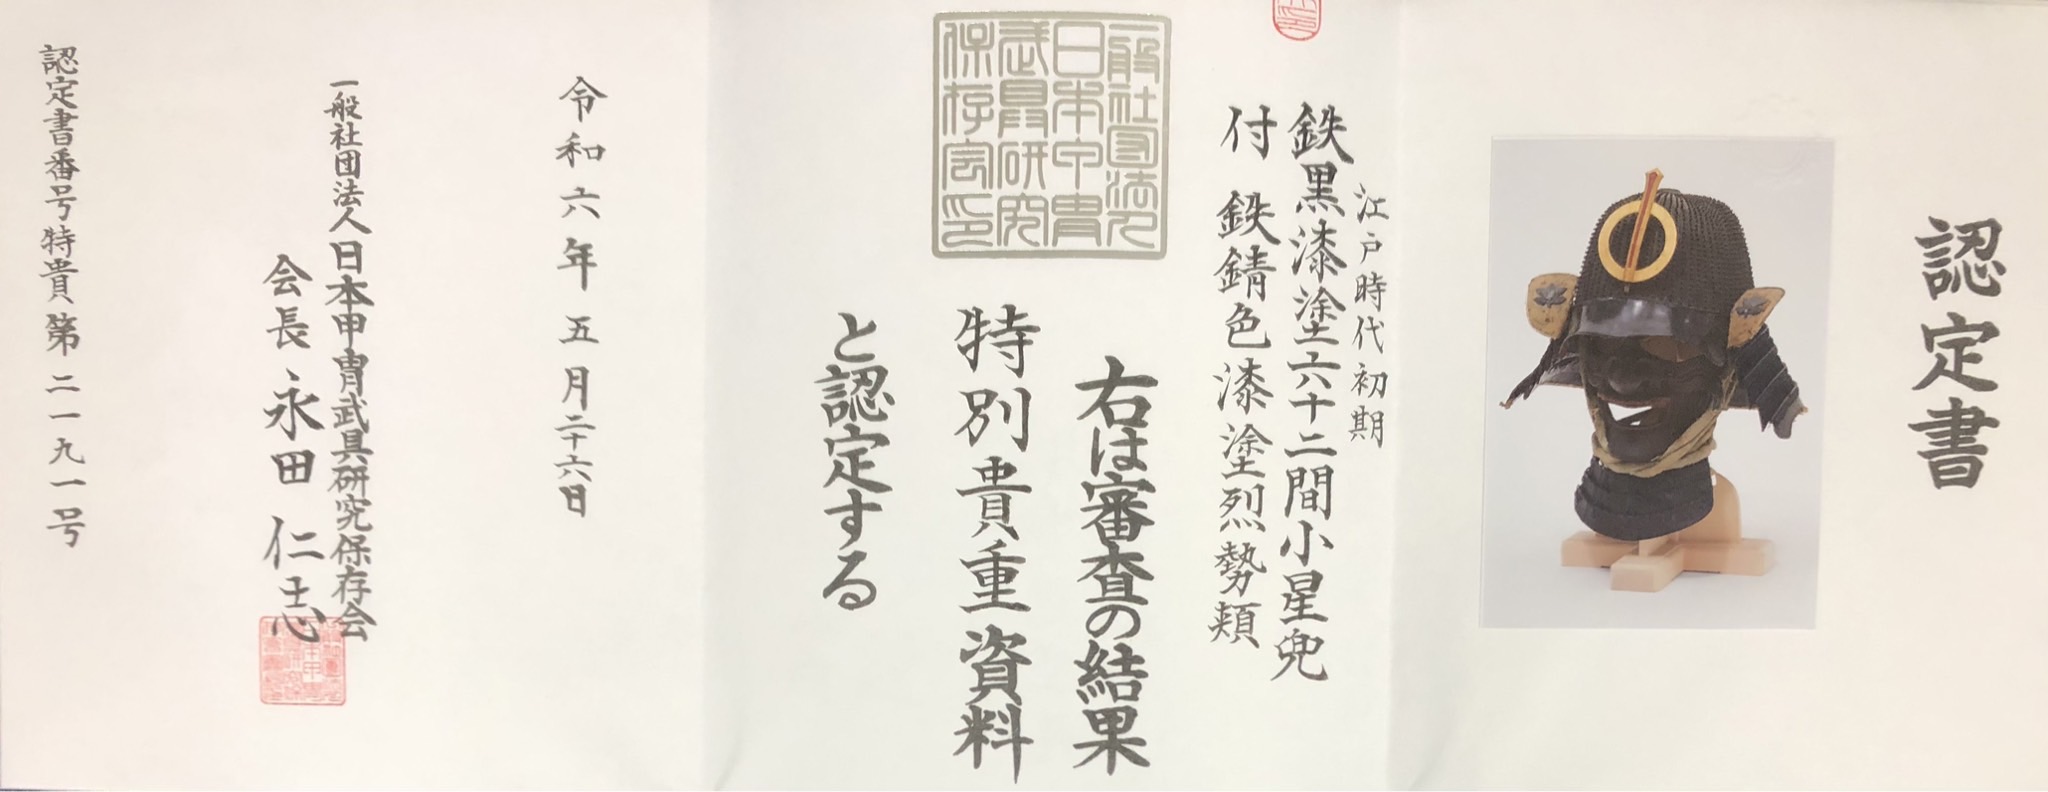 認定書
江戸時代初期
鉄黒漆塗六十二間小星兜
付 鉄錆色漆塗烈勢頬
一般社団法人
日本甲冑
武具研究
保存会印
右は審査の結果
特別貴重資料
と認定する
令和六年五月二十六日
一般社団法人日本甲冑武具研究保存会
会長 永田仁志
認定書番号特貴第二一九一号